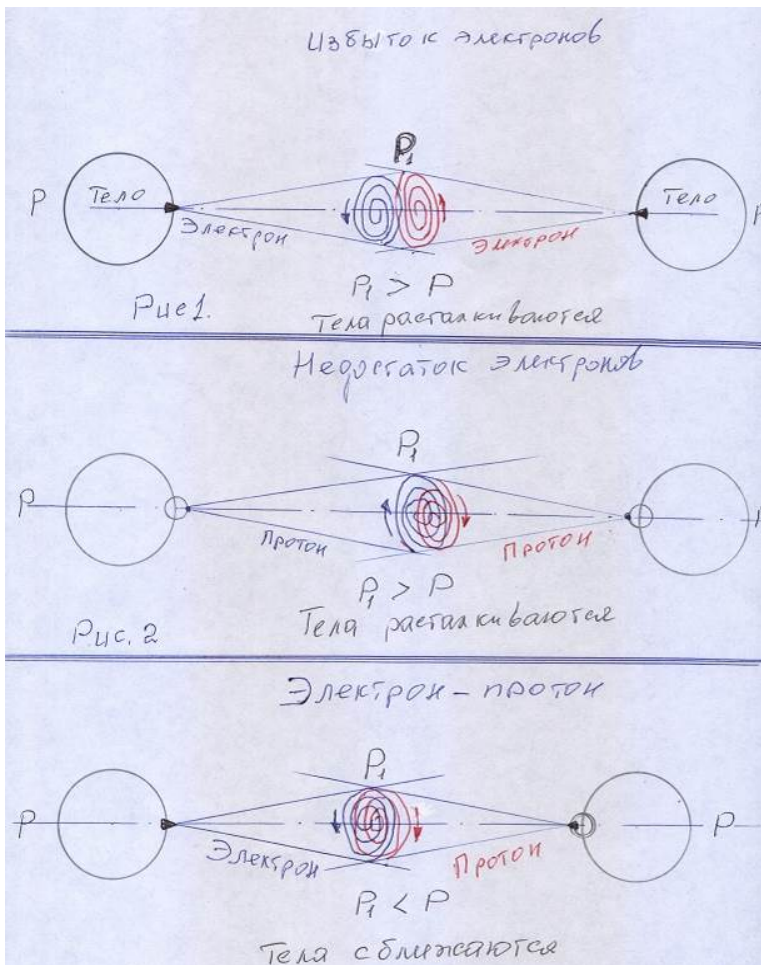 Избыток электронов
P₁
P Тело Тело P
Электрон Электрон
P₁ > P
Рис 1.
Тела расталкиваются
Недостаток электронов
P₁
P
Протон Протон
P₁ > P
Тела расталкиваются
Рис. 2
Электрон - протон
P₁
P P
Электрон Протон
P₁ < P
Тела сближаются